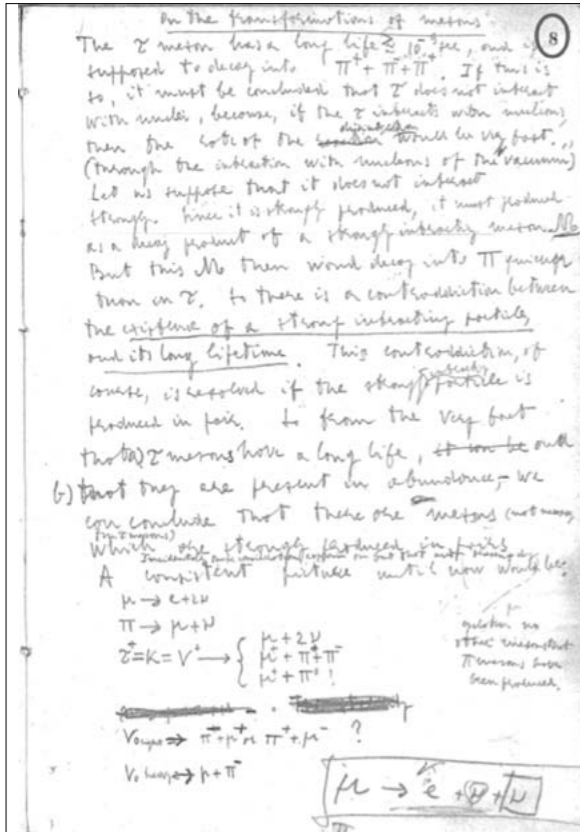 On the transformations of mesons
8
The τ meson has a long life ≳ 10⁻⁹ sec, and is
supposed to decay into π⁺ + π⁻ + π⁺. If this is
so, it must be concluded that τ does not interact
with nuclei, because, if the τ interacts with nucleons,
then the rate of the disintegration would be very fast.
(through the interaction with nucleons of the vacuum)
Let us suppose that it does not interact
strongly. Since it is strongly produced, it must produced
as a decay product of a strongly interacting meson M
But this M then would decay into π quicker
than in τ. So there is a contradiction between
the existence of a strong interacting particle,
and its long lifetime. This contradiction, of
course, is resolved if the strongly interacting particle is
produced in pair. So from the very fact
that a) τ mesons have a long life, and
b) that they are present in abundance, we
can conclude that there are mesons (not necess.
which are strongly produced in pairs
A consistent picture until now would be:
μ → e + 2ν
π → μ + ν
τ⁺ = K = V⁺ → { μ + 2ν
μ⁺ + π⁺ + π⁻
μ⁺ + π⁰ !
no
other mesons but
π mesons have
been produced.
→ π⁻ + μ⁺ or π⁺ + μ⁻ ?
V₀ heavy → p + π⁻
μ → e + ν + ν
π